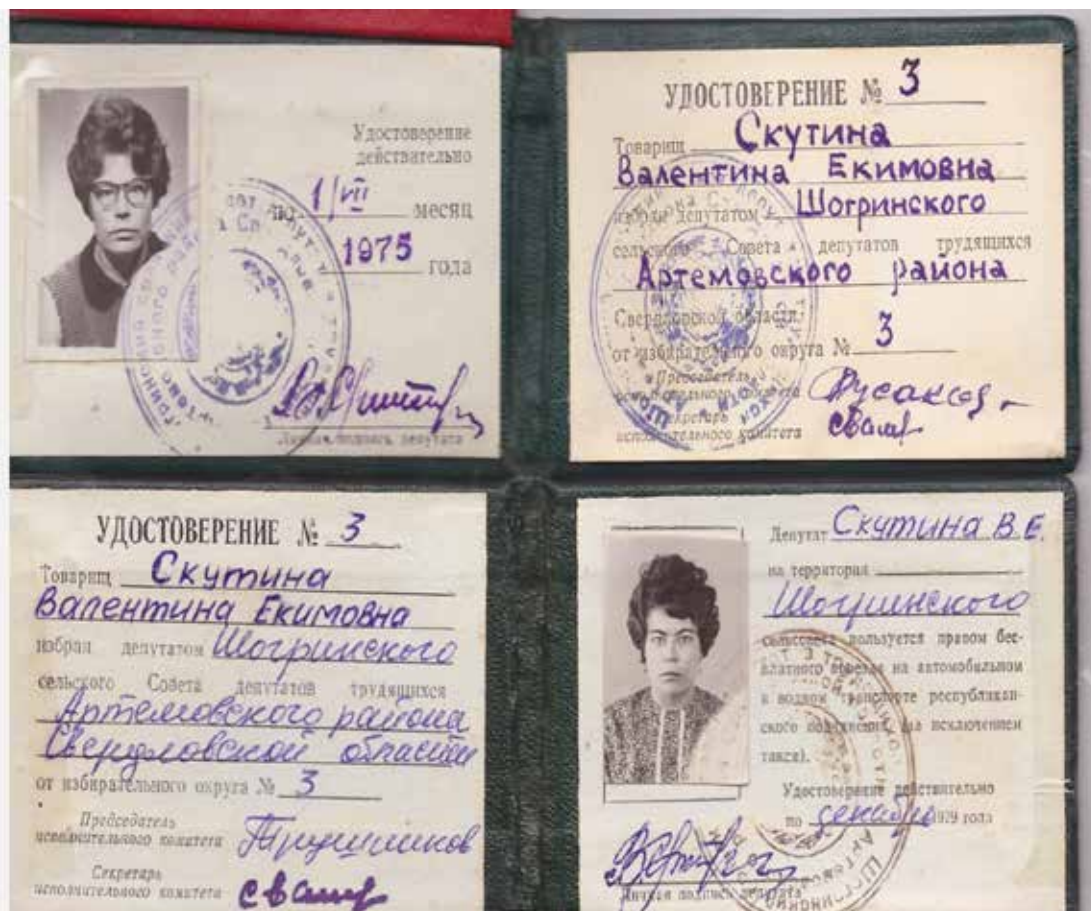 Удостоверение
действительно
по 1/VII месяц
1975 года
Личная подпись депутата
УДОСТОВЕРЕНИЕ № 3
Товарищ Скутина
Валентина Екимовна
избран депутатом Шогринского
сельского Совета депутатов трудящихся
Артемовского района
Свердловской области
от избирательного округа № 3
Председатель
исполнительного комитета Русаков
Секретарь
исполнительного комитета
УДОСТОВЕРЕНИЕ № 3
Товарищ Скутина
Валентина Екимовна
избран депутатом Шогринского
сельского Совета депутатов трудящихся
Артемовского района
Свердловской области
от избирательного округа № 3
Председатель
исполнительного комитета
Секретарь
исполнительного комитета
Депутат Скутина В.Е.
на территории
Шогринского
сельсовета пользуется правом бес-
платного проезда на автомобильном
и водном транспорте республикан-
ского подчинения (за исключением
такси).
Удостоверение действительно
по декабрь 1979 года
Личная подпись депутата